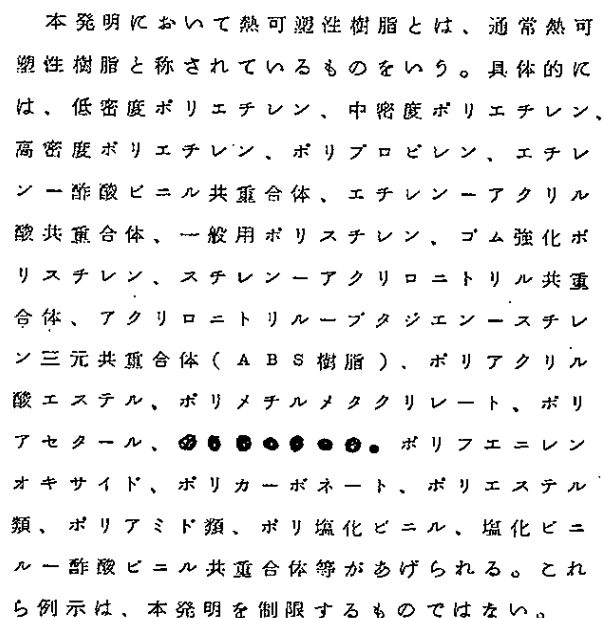 本発明において熱可塑性樹脂とは、通常熱可
塑性樹脂と称されているものをいう。具体的に
は、低密度ポリエチレン、中密度ポリエチレン、
高密度ポリエチレン、ポリプロピレン、エチレ
ン－酢酸ビニル共重合体、エチレン－アクリル
酸共重合体、一般用ポリスチレン、ゴム強化ポ
リスチレン、スチレン－アクリロニトリル共重
合体、アクリロニトリル－ブタジエン－スチレ
ン三元共重合体(ABS樹脂)、ポリアクリル
酸エステル、ポリメチルメタクリレート、ポリ
アセタール、ポリフエニレン
オキサイド、ポリカーボネート、ポリエステル
類、ポリアミド類、ポリ塩化ビニル、塩化ビニ
ル－酢酸ビニル共重合体等があげられる。これ
ら例示は、本発明を制限するものではない。